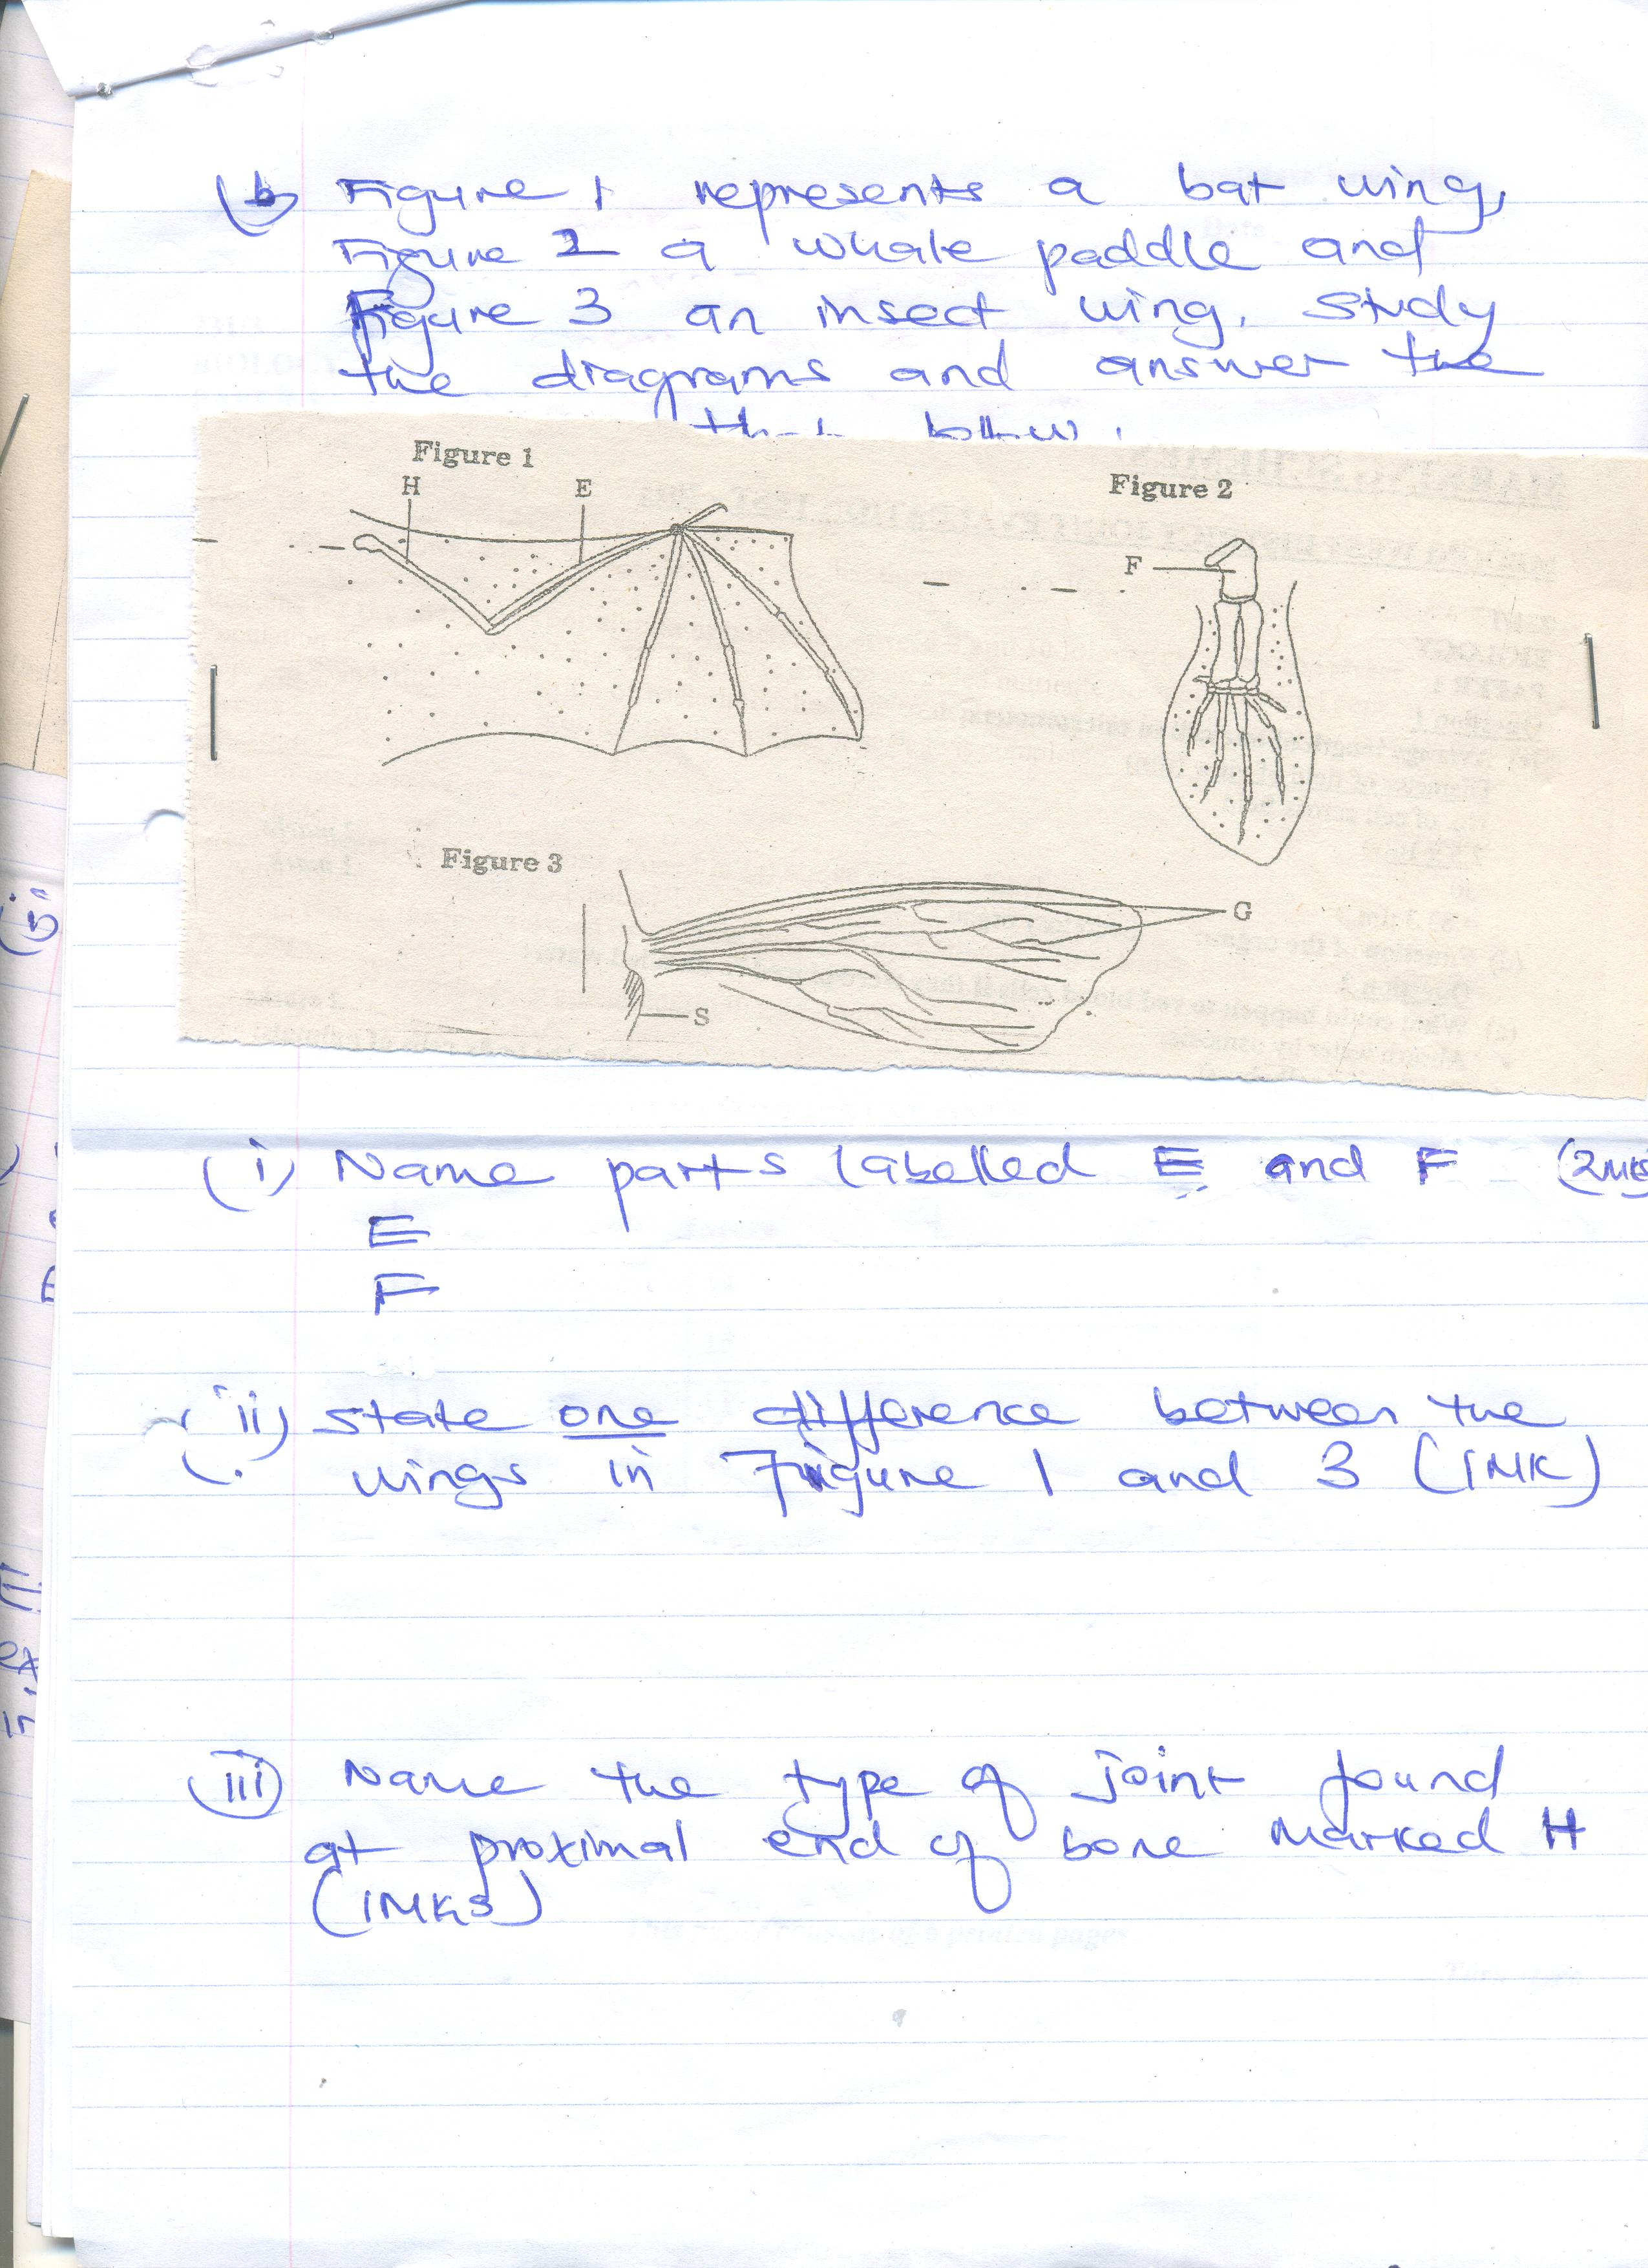 (b) Figure 1 represents a bat wing,
Figure 2 a whale paddle and
Figure 3 an insect wing. Study
the diagrams and answer the
that follow.
Figure 1
H E
Figure 2
F
Figure 3
G
S
(i) Name parts labelled E and F (2mks)
E
F
(ii) State one difference between the
wings in Figure 1 and 3 (1MK)
(iii) Name the type of joint found
at proximal end of bone marked H
(1MKS)